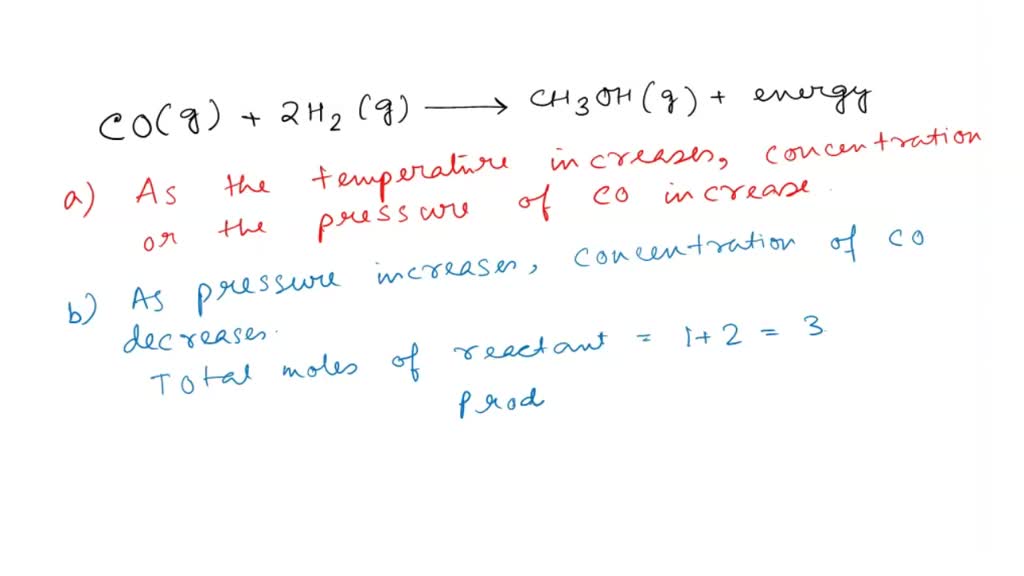 CO(g) + 2H₂(g) ⟶ CH₃OH(g) + energy
a) As the temperature increases, concentration
or the pressure of CO increase.
b) As pressure increases, concentration of CO
decreases.
Total moles of reactant = 1+2 = 3
Prod